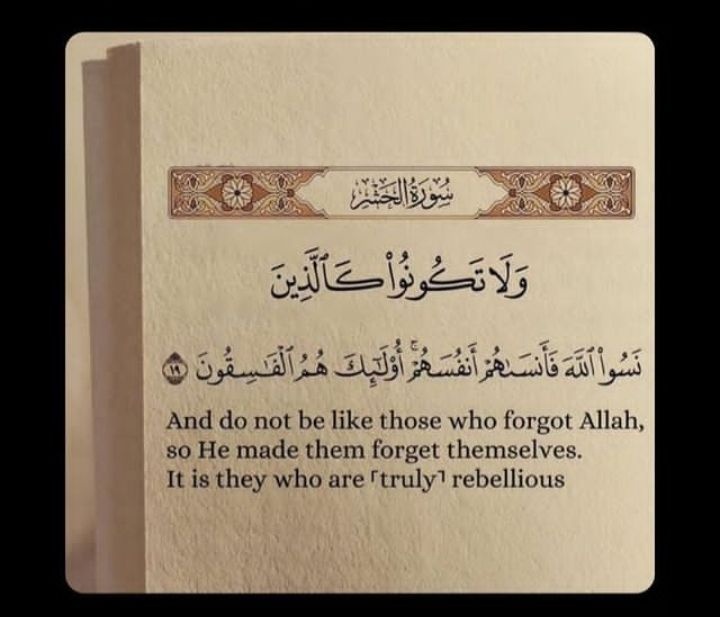 سُورَةُ الحَشْرِ
وَلَا تَكُونُوا۟ كَٱلَّذِينَ
نَسُوا۟ ٱللَّهَ فَأَنسَىٰهُمْ أَنفُسَهُمْ ۚ أُو۟لَـٰٓئِكَ هُمُ ٱلْفَـٰسِقُونَ ١٩
And do not be like those who forgot Allah,
so He made them forget themselves.
It is they who are ˹truly˺ rebellious